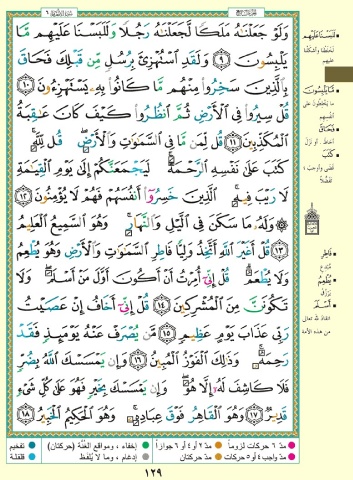 وَلَوْ جَعَلْنَٰهُ مَلَكًا لَّجَعَلْنَٰهُ رَجُلًا وَلَلَبَسْنَا عَلَيْهِم مَّا
يَلْبِسُونَ ٩ وَلَقَدِ ٱسْتُهْزِئَ بِرُسُلٍ مِّن قَبْلِكَ فَحَاقَ
بِٱلَّذِينَ سَخِرُوا۟ مِنْهُم مَّا كَانُوا۟ بِهِۦ يَسْتَهْزِءُونَ ١٠
قُلْ سِيرُوا۟ فِى ٱلْأَرْضِ ثُمَّ ٱنظُرُوا۟ كَيْفَ كَانَ عَٰقِبَةُ
ٱلْمُكَذِّبِينَ ١١ قُل لِّمَن مَّا فِى ٱلسَّمَٰوَٰتِ وَٱلْأَرْضِ قُل لِّلَّهِ
كَتَبَ عَلَىٰ نَفْسِهِ ٱلرَّحْمَةَ لَيَجْمَعَنَّكُمْ إِلَىٰ يَوْمِ ٱلْقِيَٰمَةِ
لَا رَيْبَ فِيهِ ٱلَّذِينَ خَسِرُوٓا۟ أَنفُسَهُمْ فَهُمْ لَا يُؤْمِنُونَ ١٢
وَلَهُۥ مَا سَكَنَ فِى ٱلَّيْلِ وَٱلنَّهَارِ وَهُوَ ٱلسَّمِيعُ ٱلْعَلِيمُ
١٣ قُلْ أَغَيْرَ ٱللَّهِ أَتَّخِذُ وَلِيًّا فَاطِرِ ٱلسَّمَٰوَٰتِ وَٱلْأَرْضِ وَهُوَ يُطْعِمُ
وَلَا يُطْعَمُ قُلْ إِنِّىٓ أُمِرْتُ أَنْ أَكُونَ أَوَّلَ مَنْ أَسْلَمَ وَلَا
تَكُونَنَّ مِنَ ٱلْمُشْرِكِينَ ١٤ قُلْ إِنِّىٓ أَخَافُ إِنْ عَصَيْتُ
رَبِّى عَذَابَ يَوْمٍ عَظِيمٍ ١٥ مَّن يُصْرَفْ عَنْهُ يَوْمَئِذٍ فَقَدْ
رَحِمَهُۥ وَذَٰلِكَ ٱلْفَوْزُ ٱلْمُبِينُ ١٦ وَإِن يَمْسَسْكَ ٱللَّهُ بِضُرٍّ
فَلَا كَاشِفَ لَهُۥٓ إِلَّا هُوَ وَإِن يَمْسَسْكَ بِخَيْرٍ فَهُوَ عَلَىٰ كُلِّ شَىْءٍ
قَدِيرٌ ١٧ وَهُوَ ٱلْقَاهِرُ فَوْقَ عِبَادِهِۦ وَهُوَ ٱلْحَكِيمُ ٱلْخَبِيرُ ١٨
لَلَبَسْنَا عَلَيْهِم
مَّا يَلْبِسُونَ
فَحَاقَ
كَتَبَ
فَاطِرِ
يُطْعِمُ
أَسْلَمَ
مدّ ٦ حركات لزوماً مدّ ٢ أو ٤ أو ٦ جوازاً إخفاء، ومواقع الغُنَّة (حركتان) تفخيم
مدّ واجب ٤ أو ٥ حركات مدّ حركتان إدغام، وما لا يُلفظ قلقلة
١٢٩